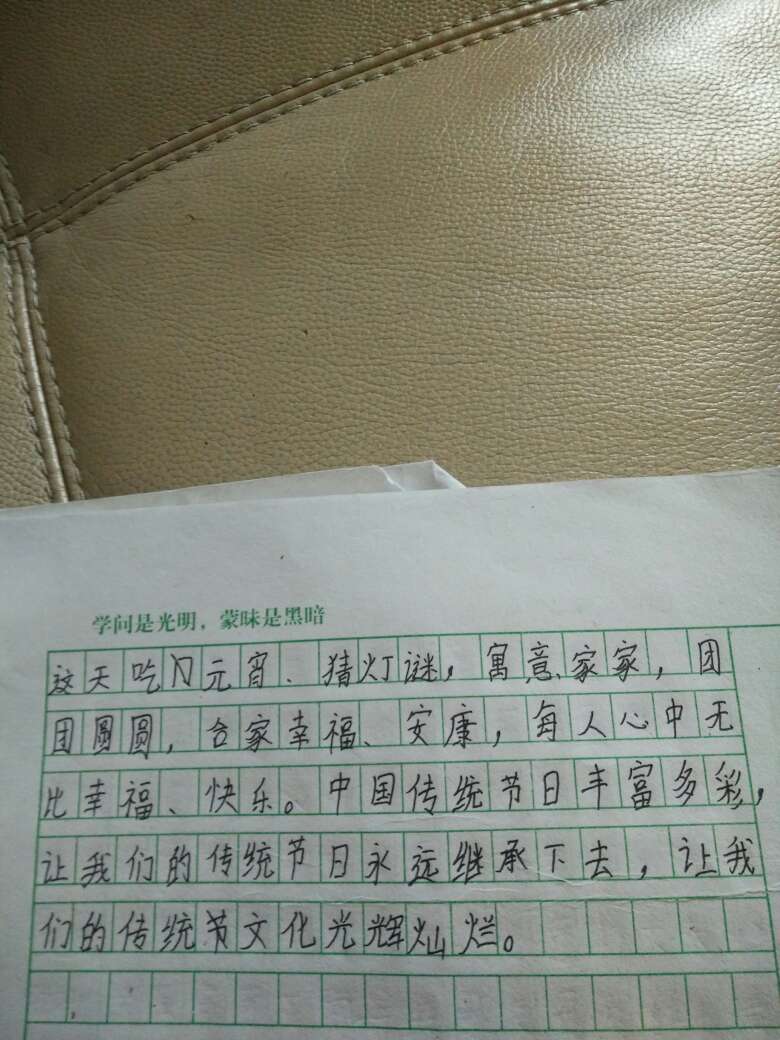 学问是光明，蒙昧是黑暗
这天吃元宵、猜灯谜，寓意家家，团
团圆圆，合家幸福、安康，每人心中无
比幸福、快乐。中国传统节日丰富多彩，
让我们的传统节日永远继承下去，让我
们的传统节文化光辉灿烂。